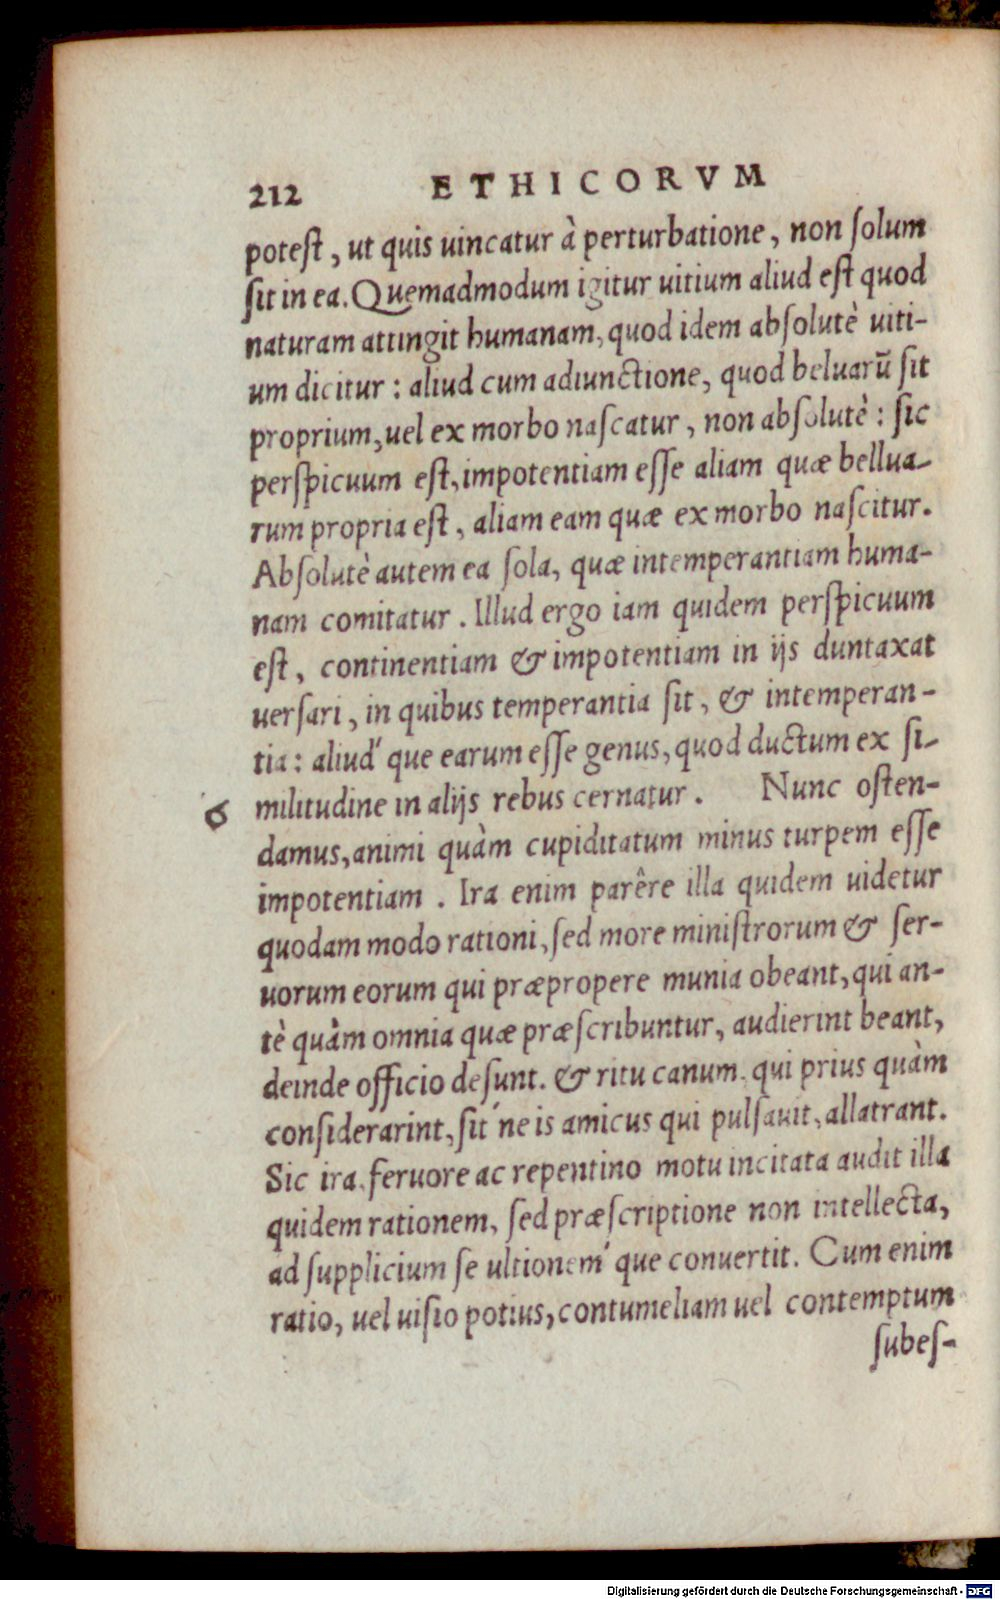 212 ETHICORVM
potest, ut quis uincatur à perturbatione, non ſolum
ſit in ea. Quemadmodum igitur uitium aliud eſt quod
naturam attingit humanam, quod idem abſolutè uiti-
um dicitur: aliud cum adiunctione, quod beluarū ſit
proprium, uel ex morbo naſcatur, non abſolutè: ſic
perſpicuum eſt, impotentiam eſſe aliam quæ bellua-
rum propria eſt, aliam eam quæ ex morbo naſcitur.
Abſolutè autem ea ſola, quæ intemperantiam huma-
nam comitatur. Illud ergo iam quidem perſpicuum
eſt, continentiam & impotentiam in ijs duntaxat
uerſari, in quibus temperantia ſit, & intemperan-
tia: aliud́ que earum eſſe genus, quod ductum ex ſi-
6 militudine in alijs rebus cernatur. Nunc oſten-
damus, animi quàm cupiditatum minus turpem eſſe
impotentiam. Ira enim parêre illa quidem uidetur
quodam modo rationi, ſed more miniſtrorum & ſer-
uorum eorum qui præpropere munia obeant, qui an-
tè quàm omnia quæ præſcribuntur, audierint beant,
deinde officio deſunt. & ritu canum. qui prius quàm
conſiderarint, ſit́ ne is amicus qui pulſauit, allatrant.
Sic ira feruore ac repentino motu incitata audit illa
quidem rationem, ſed præſcriptione non intellecta,
ad ſupplicium ſe ultioneḿ que conuertit. Cum enim
ratio, uel uiſio potius, contumeliam uel contemptum
ſubeſ-
Digitalisierung gefördert durch die Deutsche Forschungsgemeinschaft - DFG